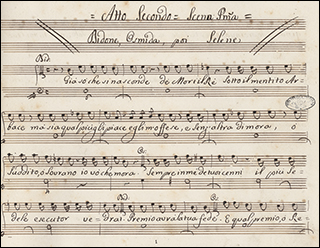 = Atto Secondo = Scena Pr͠ma =
Didone, Osmida, poi Selene
Did.
Già sò che si nasconde de Mori il Rè Sotto il mentito Ar-
bace ma sia qual più gli piace egli m'offese, e senz'altra dimora, o
Suddito, o Sovrano io vò che mora Sempre in me de tuoi cenni il più fe-
Os.
dele executor vedrai Premio avrà la tua fede. E qual premio, o Re-
1